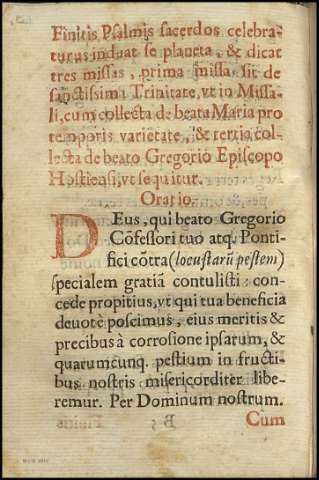 Finitis Psalmis sacerdos celebra-
turus induat se planeta, & dicat
tres missas, prima missa sit de
sanctissima Trinitate, vt in Missa-
li, cum collecta de beata Maria pro
temporis varietate, & tertia col-
lecta de beato Gregorio Episcopo
Hostiensi, vt sequitur.
Oratio.
DEus, qui beato Gregorio
Cõfessori tuo atq. Ponti-
fici cõtra (locustarũ pestem)
specialem gratiã contulisti: con-
cede propitius, vt qui tua beneficia
deuotè poscimus, eius meritis &
precibus à corrosione ipsarum, &
quarumcunq. pestium in fructi-
bus nostris misericorditer libe-
remur. Per Dominum nostrum.
Cum